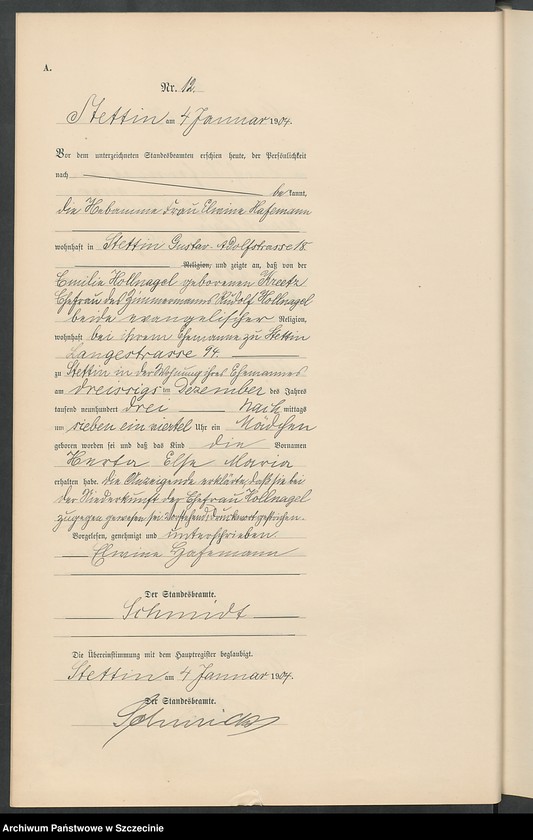 A.
Nr. 12.
Stettin am 4 Januar 1904.
Vor dem unterzeichneten Standesbeamten erschien heute, der Persönlichkeit
nach
be kannt,
die Hebamme Frau Elwine Hafemann
wohnhaft in Stettin Gustav-Adolfstrasse 18.
Religion, und zeigte an, daß von der
Emilie Hollnagel geborenen Kreetz
Ehefrau des Zimmermanns Rudolf Hollnagel
beide evangelischer Religion,
wohnhaft bei ihrem Ehemanne zu Stettin
Langestrasse 94.
zu Stettin in der Wohnung ihres Ehemannes
am dreissigs ten Dezember des Jahres
tausend neunhundert drei Nach mittags
um sieben ein viertel Uhr ein Mädchen
geboren worden sei und daß das Kind die Vornamen
Herta Else Maria
erhalten habe. Die Anzeigende erklärte, daß sie bei
der Niederkunft der Ehefrau Hollnagel
zugegen gewesen sei. Vorstehend 1 Druckwort gestrichen.
Vorgelesen, genehmigt und unterschrieben
Elwine Hafemann
Der Standesbeamte.
Schmidt
Die Übereinstimmung mit dem Hauptregister beglaubigt.
Stettin am 4 Januar 1904.
Der Standesbeamte.
Schmidt
Archiwum Państwowe w Szczecinie